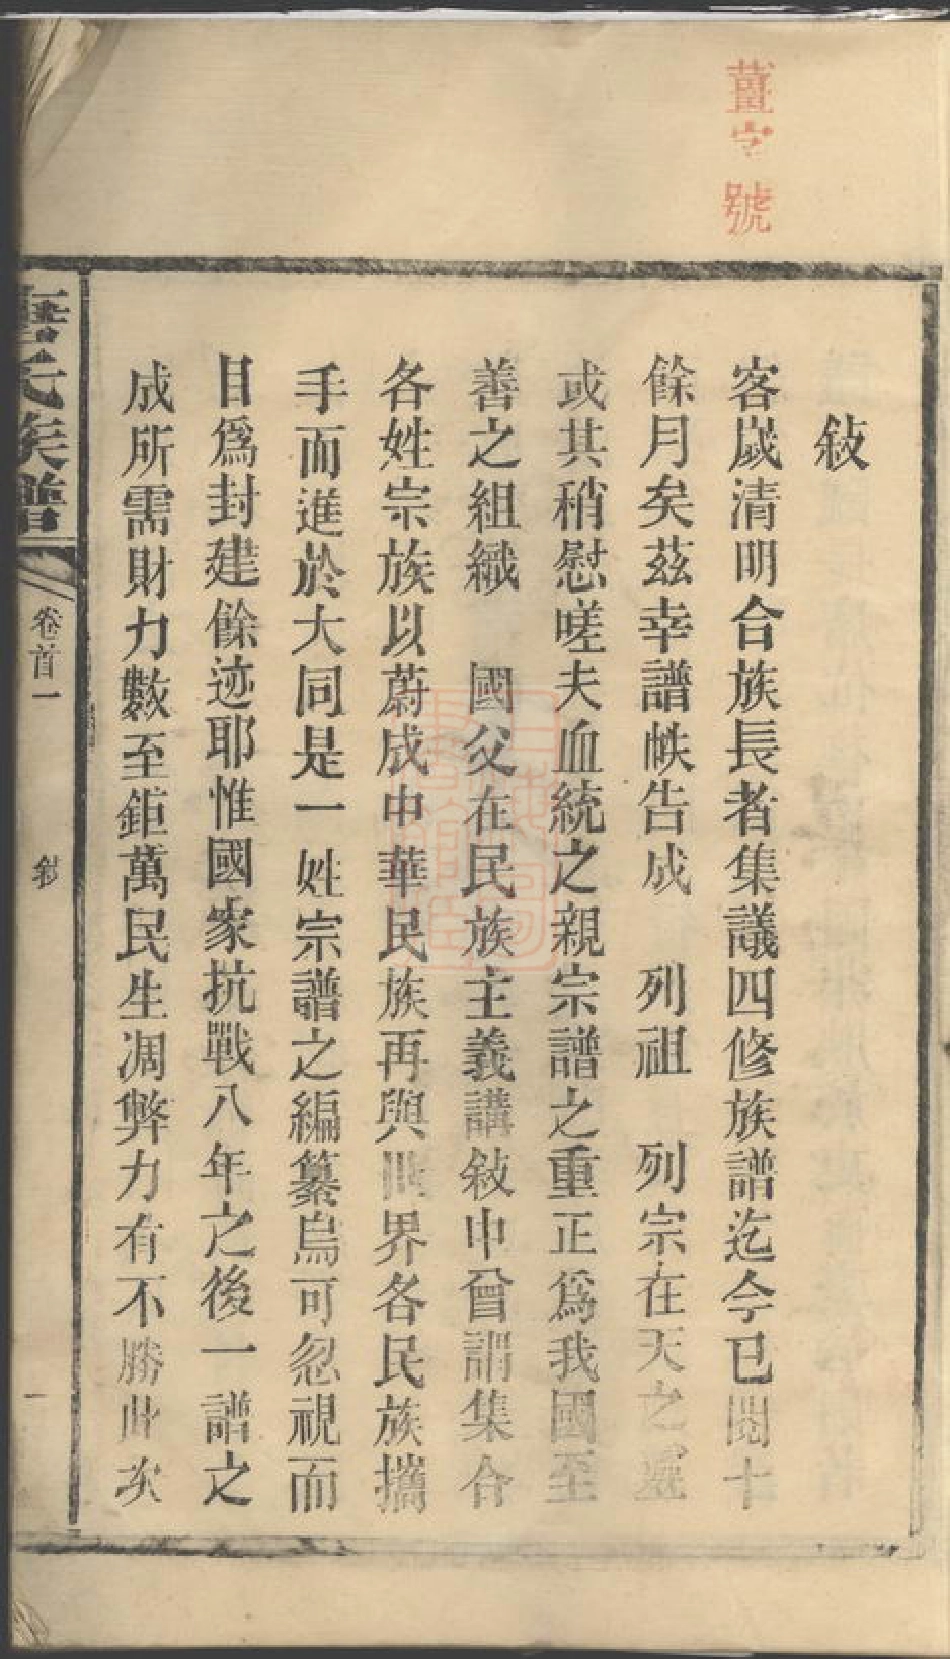 薑字號
敍
客歲清明合族長者集議四修族譜迄今已閱十
餘月矣茲幸譜帙告成　列祖　列宗在天之靈
或其稍慰嗟夫血統之親宗譜之重正爲我國至
善之組織　國父在民族主義講敍中曾謂集合
各姓宗族以蔚成中華民族再與世界各民族攜
手而進於大同是一姓宗譜之編纂烏可忽視而
目爲封建餘迹耶惟國家抗戰八年之後一譜之
成所需財力數至鉅萬民生凋弊力有不勝此次
氏族譜
卷首一
敍
一